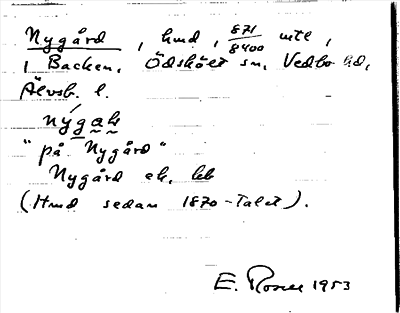 Nygård, hmd, 871/8400 mtl,
i Backen, Ödskölt sn, Vedbo hd,
Älvsb. l.
nýgaḵ
"på Nygård"
Nygård ek. kb
(Hmd sedan 1870-talet).
E. Rosell 1953